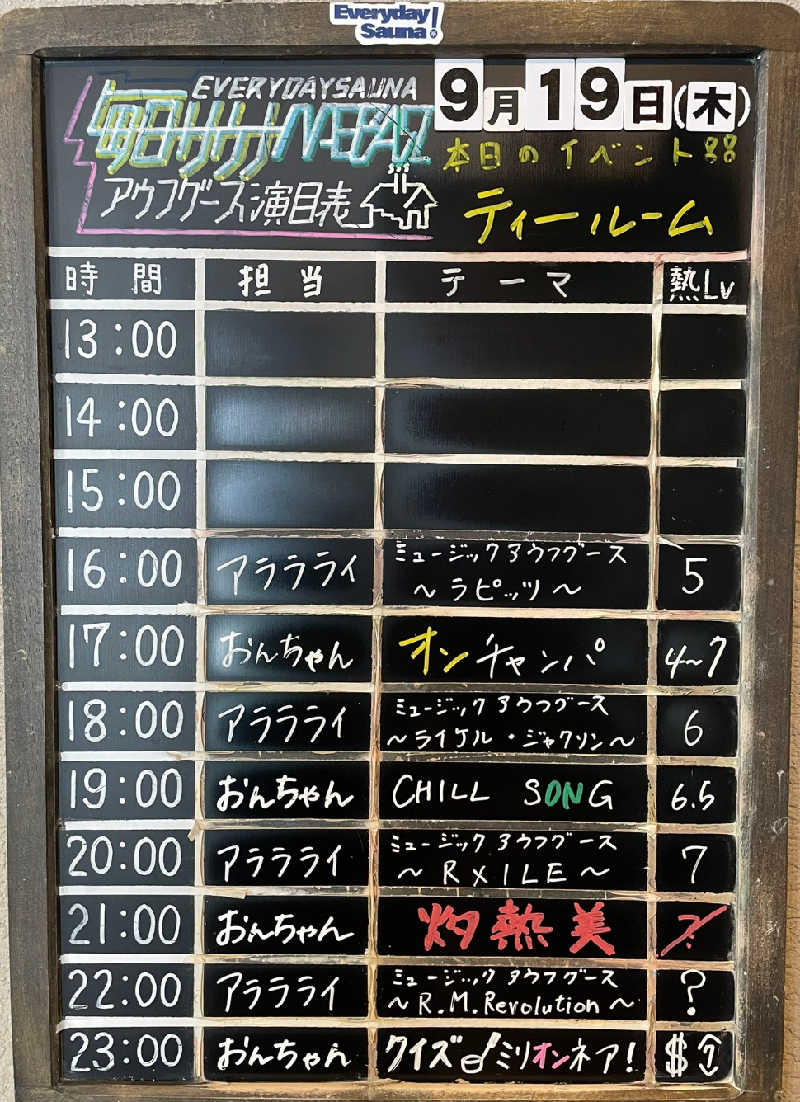 Everyday
Sauna!
EVERYDAYSAUNA
毎日サウナ MAEBASHI
9月19日(木)
アウフグース演目表
本日のイベント
ティールーム
時間 担当 テーマ 熱Lv
13:00
14:00
15:00
16:00 アララライ ミュージックアウフグース 5
～ラピッツ～
17:00 おんちゃん オンチャンパ 4～7
18:00 アララライ ミュージックアウフグース 6
～ライケル・ジャクソン～
19:00 おんちゃん CHILL SONG 6.5
20:00 アララライ ミュージックアウフグース 7
～RXILE～
21:00 おんちゃん 灼熱美 ?
22:00 アララライ ミュージックアウフグース ?
～R.M.Revolution～
23:00 おんちゃん クイズ♪ミリオンネア! $